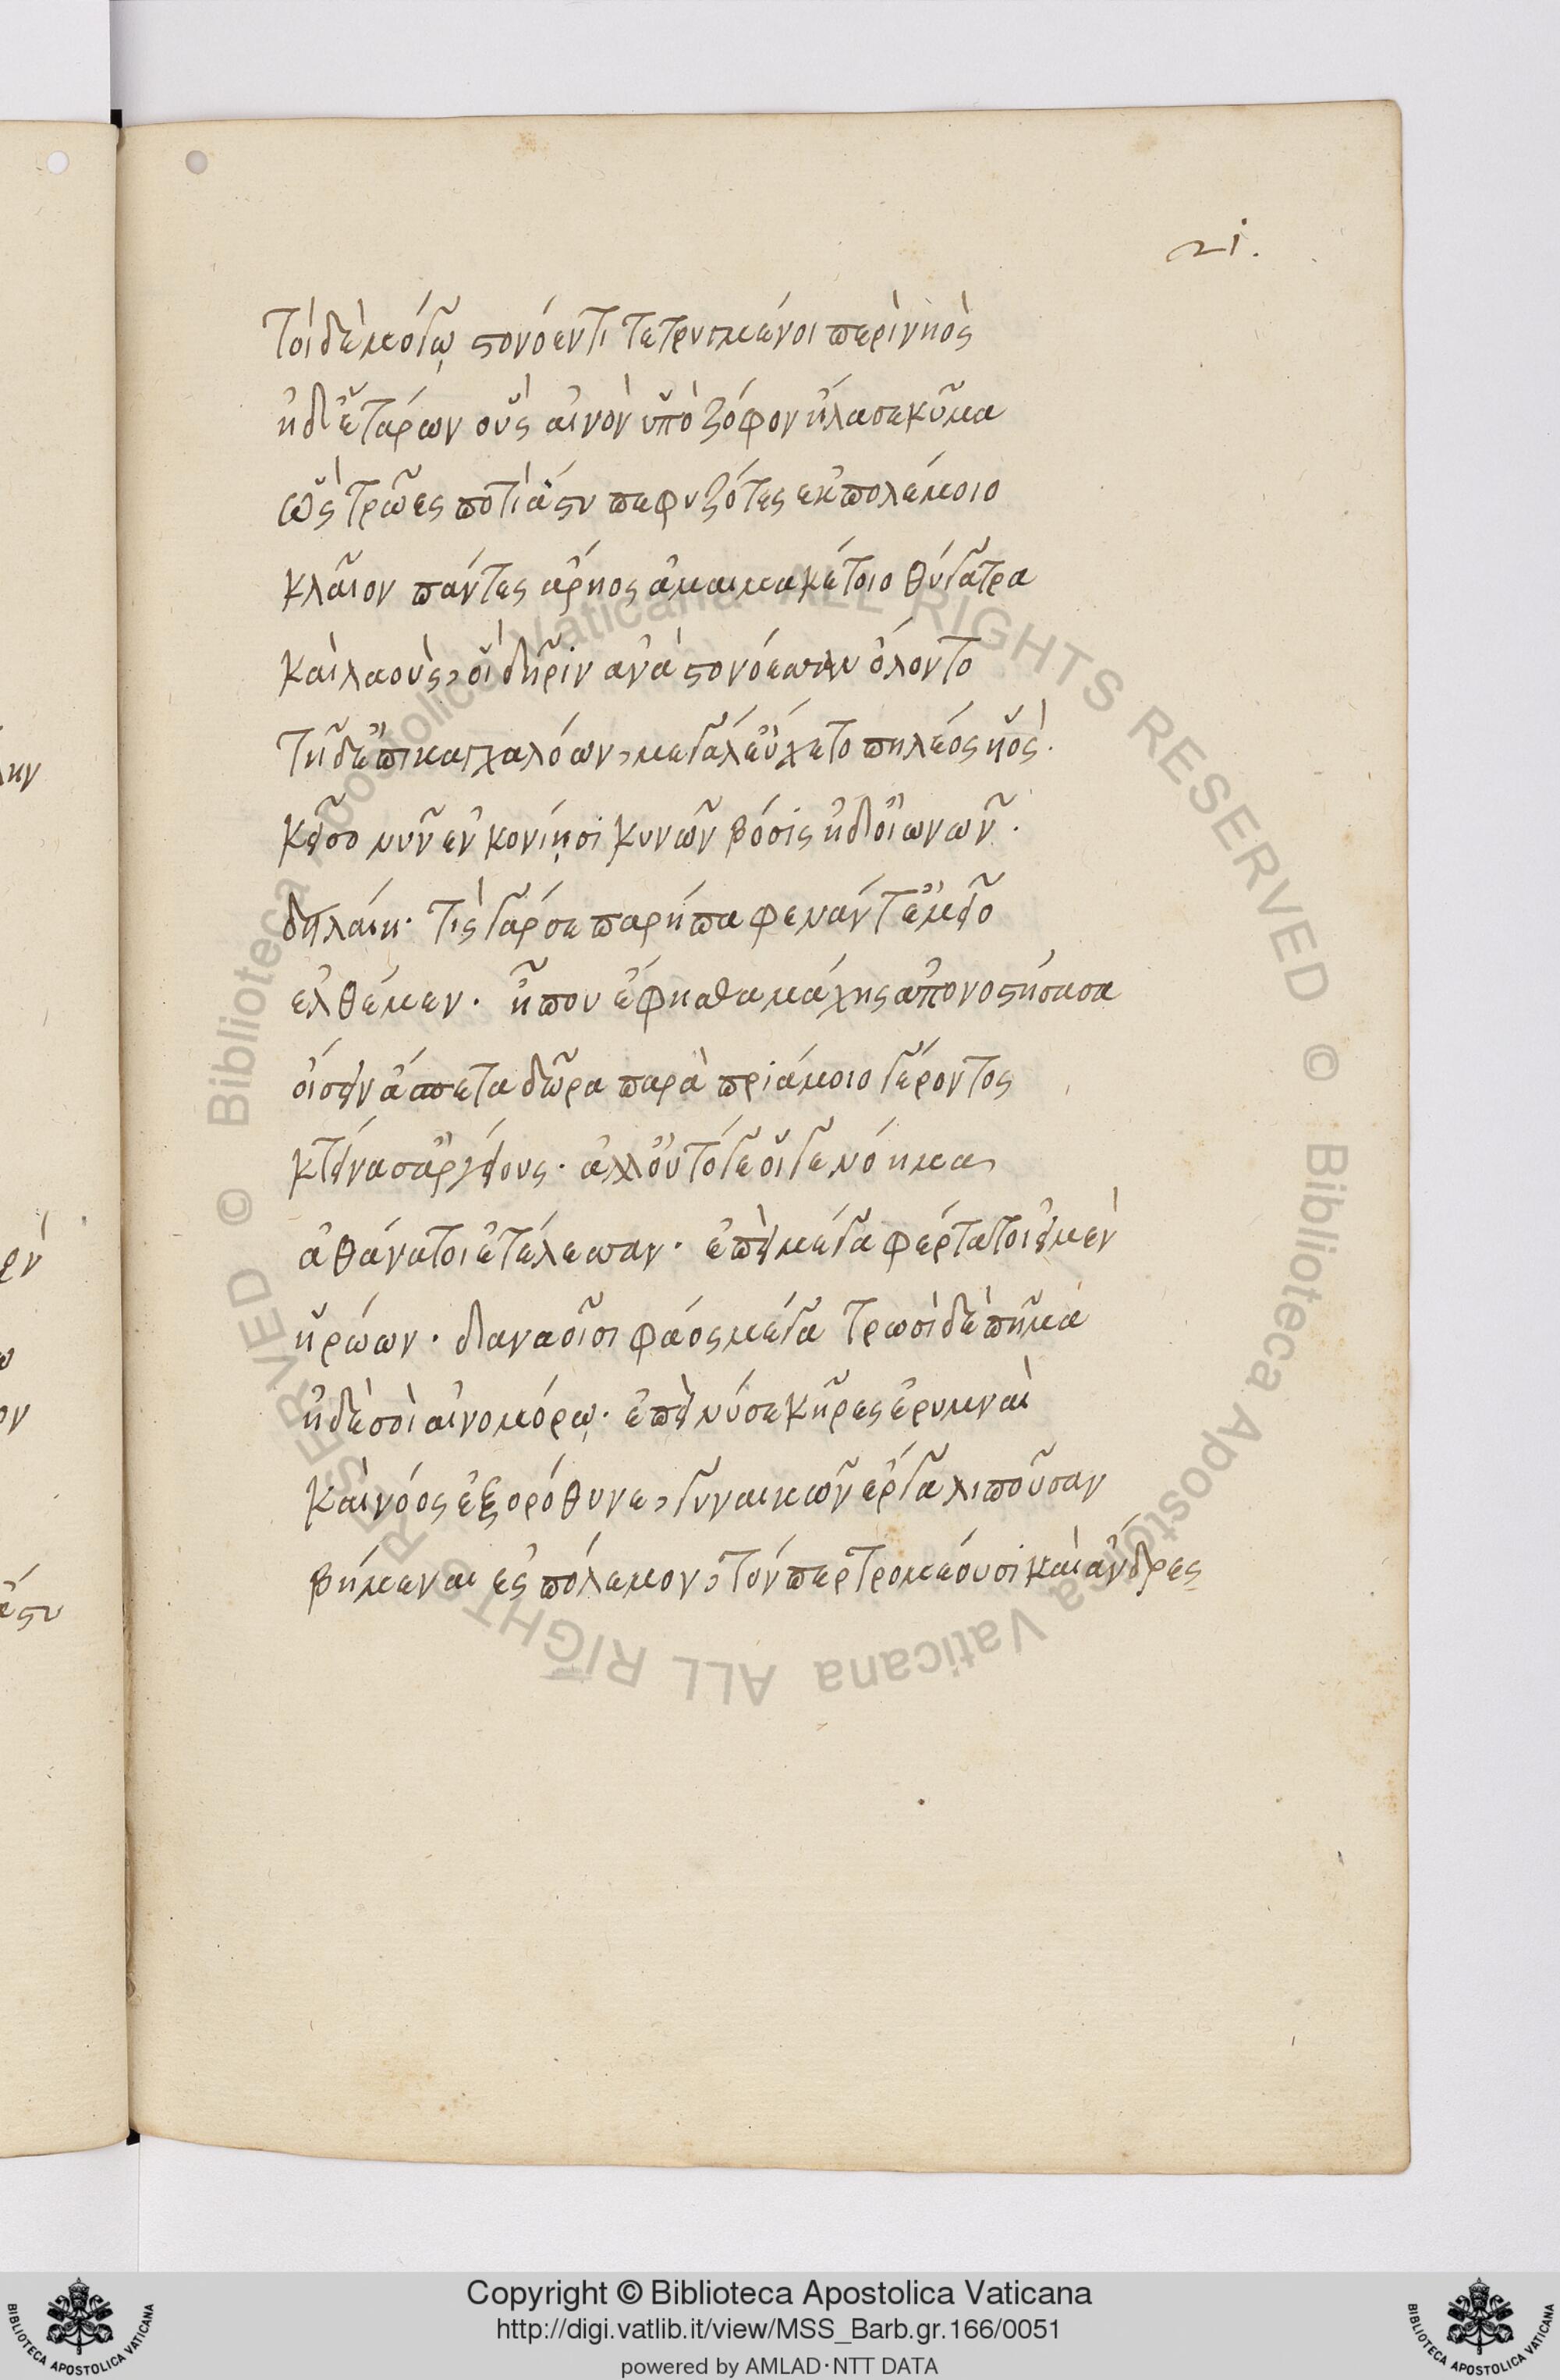 21.
τοὶ δὲ μόγῳ στονόεντι τετρυμένοι περὶ νηὸς
ἠδ' ἑτάρων οὓς αἰνὸν ὑπὸ ζόφον ἤλασε κῦμα
ὣς τρῶες ποτὶ ἄστυ πεφυζότες ἐκ πολέμοιο
κλαῖον πάντες ἄρηος ἀμαιμακέτοιο θύγατρα
καὶ λαοὺς, οἳ δῆριν ἀνὰ στονόεσσαν ὄλοντο
τῇ δ' ἐπικαγχαλόων, μεγάλ' εὔχετο πηλέος ηὑὸς.
κεῖσο νυν ἐν κονίῃσι κυνῶν βόσις ἠδ' οἰωνῶν.
δειλαίη. τίς γάρ σε παρήπαφεν ἄντ' ἐμεῖο
ἐλθέμεν. ἦ που ἔφησθα μάχης ἄπο νοστήσασα
οἴσειν ἄσπετα δῶρα παρὰ πριάμοιο γέροντος
κτείνασ' ἀργείους. ἀλλ' οὐ τόγε οἵγε νόημα
ἀθάνατοι ἐτέλεσσαν. ἐπεὶ μέγα φέρτατοι εἰμεν
ἡρώων. δαναοῖσι φάος μέγα τρωσὶ δὲ πῆμα
ἠδὲ σοὶ αἰνομόρῳ. ἐπεὶ νύ σε κῆρες ἐρυμναὶ
καὶ νόος ἐξορόθυνε, γυναικῶν ἔργα λιποῦσαν
βήμεναι ἐς πόλεμον, τόν περ τρομέουσι καὶ ἄνδρες
Copyright © Biblioteca Apostolica Vaticana
http://digi.vatlib.it/view/MSS_Barb.gr.166/0051
powered by AMLAD·NTT DATA
BIBLIOTECA APOSTOLICA VATICANA
BIBLIOTECA APOSTOLICA VATICANA
© Biblioteca Apostolica Vaticana ALL RIGHTS RESERVED
© Biblioteca Apostolica Vaticana ALL RIGHTS RESERVED